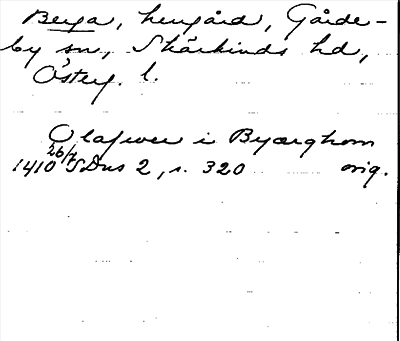 Berga, herrgård, Gårde-
by sn, Skärkinds hd,
Österg. l.
Olafwer i Byærghom
1410 26/4 SDns 2, s. 320 orig.